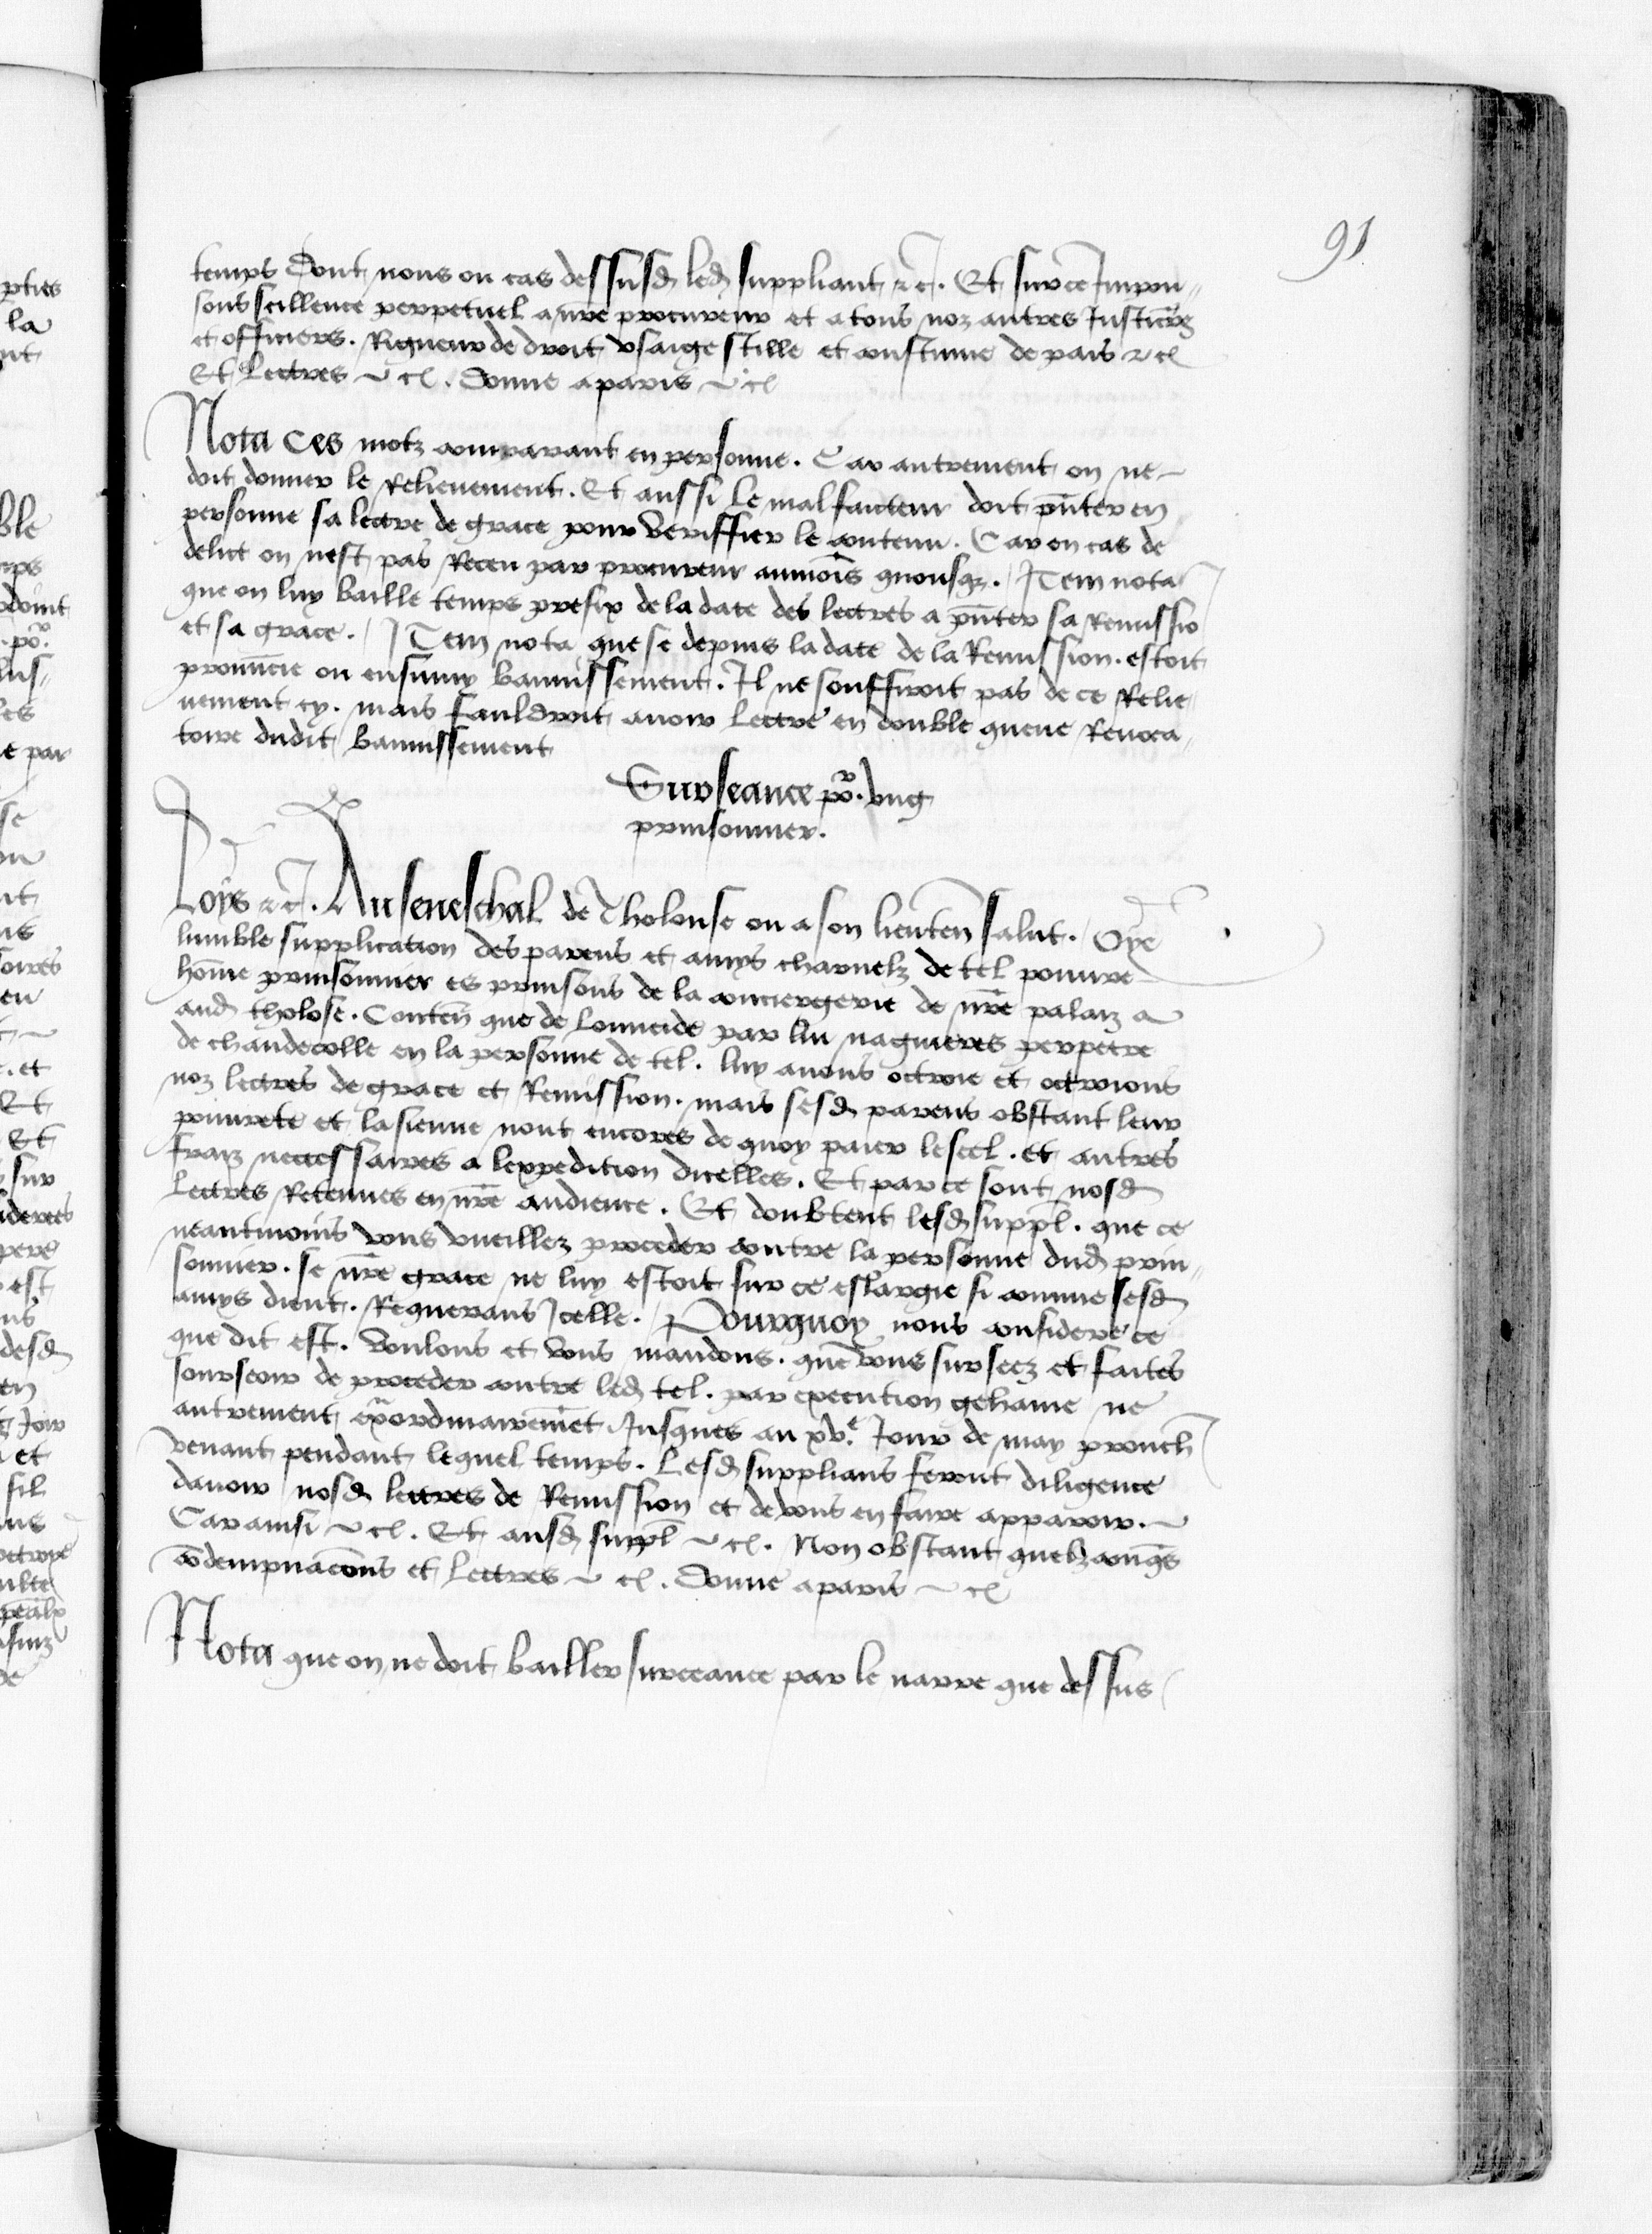 91
temps Dont nous ou cas dessusd led suppliant etc. Et sur ce Impo
sons scillence perpetuel a nre procureur et a tous noz autres Justicrs
et officiers. Rigueur de droit vsaige stille et coustume de pais etc
Et Lectres etc. Donne a paris etc
Nota Ces motz comparant en personne. Car autrement on ne
doit donner le Relievement. Et aussi le malfaicteur doit pnter en
personne sa lectre de grace pour veriffier le contenu. Car en cas de
delict on nest pas Receu par procureur aumoins quousqz. Item nota
que on luy baille temps prefix de la date des lectres a pnter sa Remissio
et sa grace. Item nota que se depuis la date de la Remission. estoit
pronuncie ou ensuiuy bannissement. Il ne souffiroit pas de ce Relie
uement cy. mais fauldroit auoir Lectre en double queue Reuoca
toire dudit bannissement
Surseance por. vng
prinsonnier.
Loys etc. Au seneschal de Tholouse ou a son lieuten salut. Oye
lumble supplication des parens et amys charnelz de tel pouure
home prinsonnier es prinsons de la conciergerie de nre palaiz a
aud tholose. Conten que de lomicide par lui nagueres perpetre
de chaudecolle en la personne de tel. luy auons octroie et octroions
noz lectres de grace et Remission. mais sesd parens obstant leur
pourete et la sienne nont encores de quoy paier le seel. et autres
fraiz necessaires a lexpedition dicelles. Et par ce sont nosd
Lectres Retenues en nre audience. Et doubtent lesd suppl. que ce
neantmoins vous vueillez proceder contre la personne dud prin
sonnier. se nre grace ne luy estoit sur ce eslargie si comme sesd
amys dient. Requerans Icelle. Pourquoy nous considere ce
que dit est. Voulons et vous mandons. que vous surseez et faites
sourseoir de proceder contre led tel. par execution gehaine ne
autrement exraordinairemet Jusques au xve. Jour de may prouch
venant pendant lequel temps. Lesd supplians feront diligence
dauoir nosd lectres de Remission et de vous en faire apparoir.
Car ainsi etc. Et ausd suppl etc. Non obstant quelzconqs
codempnacons et Lectres etc. Donne a paris etc
Nota que on ne doit bailler surceance par le narre que dessus